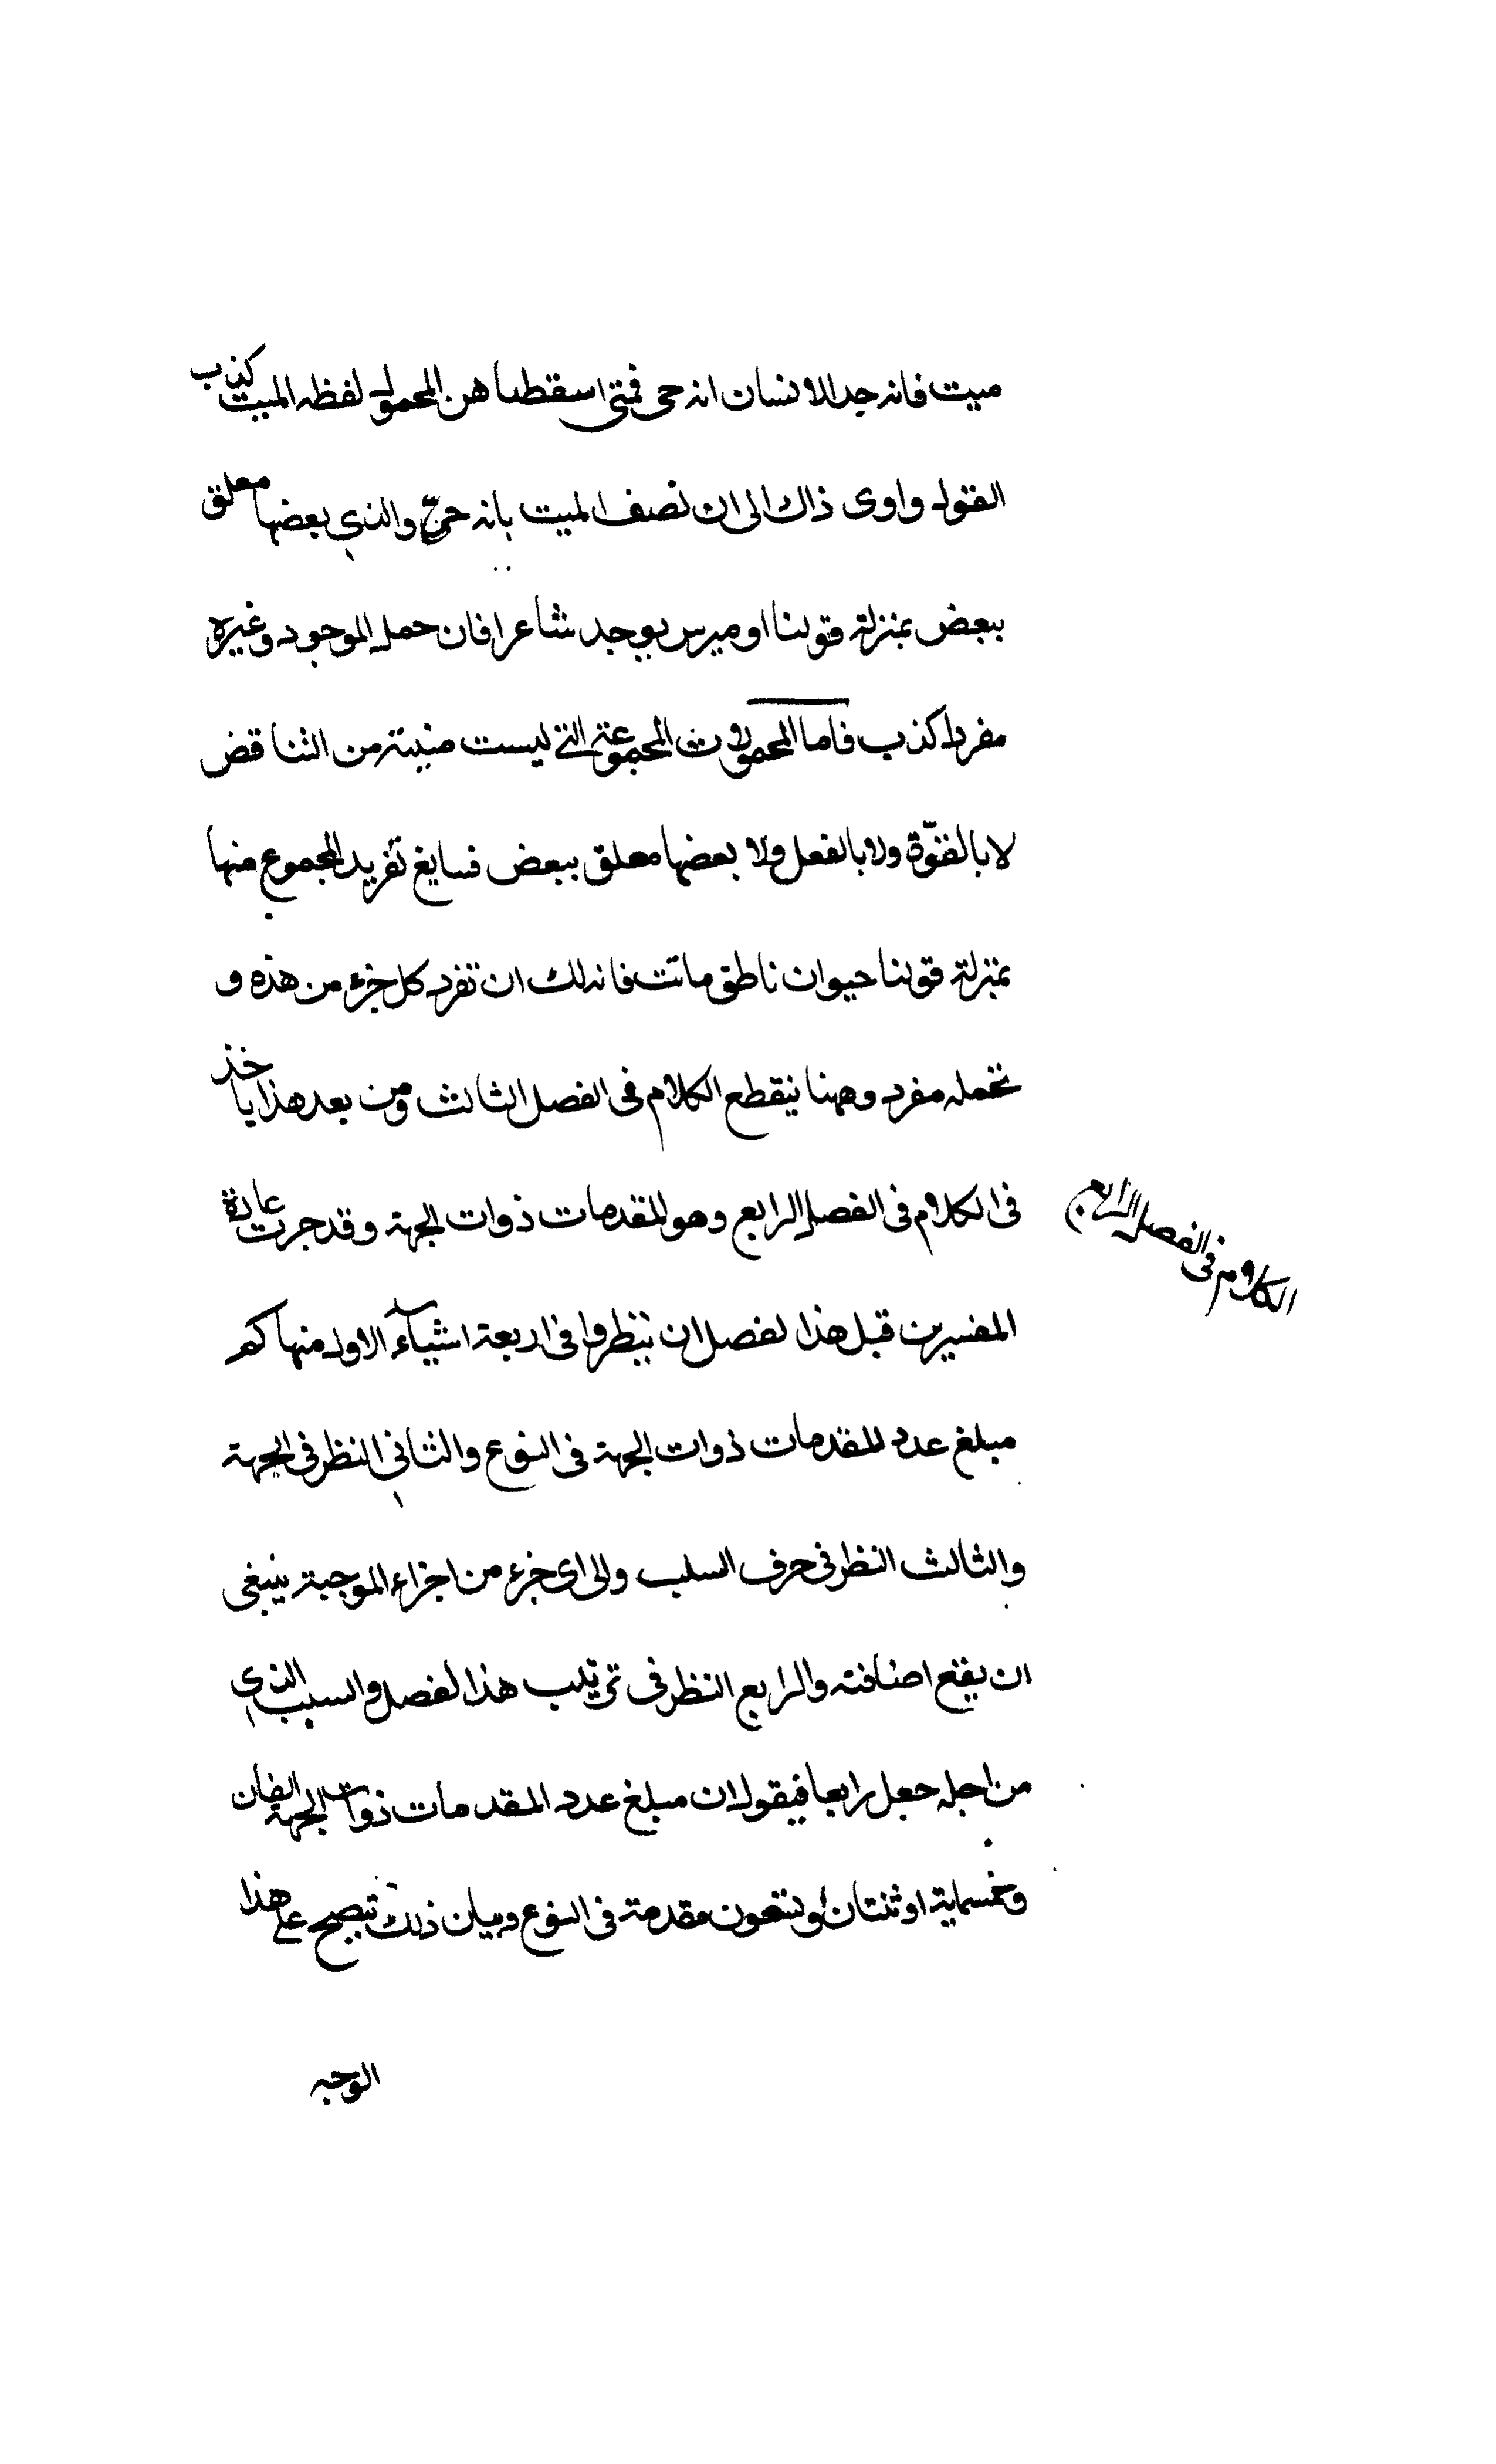 ميت فانه حد الانسان انه حى فمتى اسقطنا من المحمول لفظه الميت كذب
القول واوى ذاك الى ان نصف الميت بانه حى والذي بعضها معلق
ببعض بمنزلة قولنا اوميرس يوجد شاعرا فان حمل الموجود وغيره
مفردا كذب فاما المحمولات المجموعة التى ليست مبنية من التناقض
لا بالقوّة ولا بالفعل ولا بعضها معلق ببعض فسايغ تفريد المجموع منها
بمنزلة قولنا حيوان ناطق مائت فانه لك ان تفرد كل جزء من هذه و
تحمله مفرد وههنا ينقطع الكلام فى الفصل الثالث ومن بعد هذا ياخذ
فى الكلام فى الفصل الرابع وهو المقدمات ذوات الجهة وقد جرت عادة
الكلام فى الفصل الرابع
المفسرين قبل هذا الفصل ان ينظروا فى اربعة اشياء الاول منها كم
مبلغ عدد المقدمات ذوات الجهة فى النوع والثانى النظر فى الجهة
والثالث النظر فى حرف السلب والى اى جزء من اجزاء الموجبة ينبغى
ان يقع اضافته والرابع النظر فى ترتيب هذا الفصل والسبب الذي
من اجله جعل رابعا فيقول ان مبلغ عدد المقدمات ذوات الجهة الفان
وخمسماية او ثنتان وتسعون مقدمة فى النوع وبيان ذلك يصح على هذا
الوجه